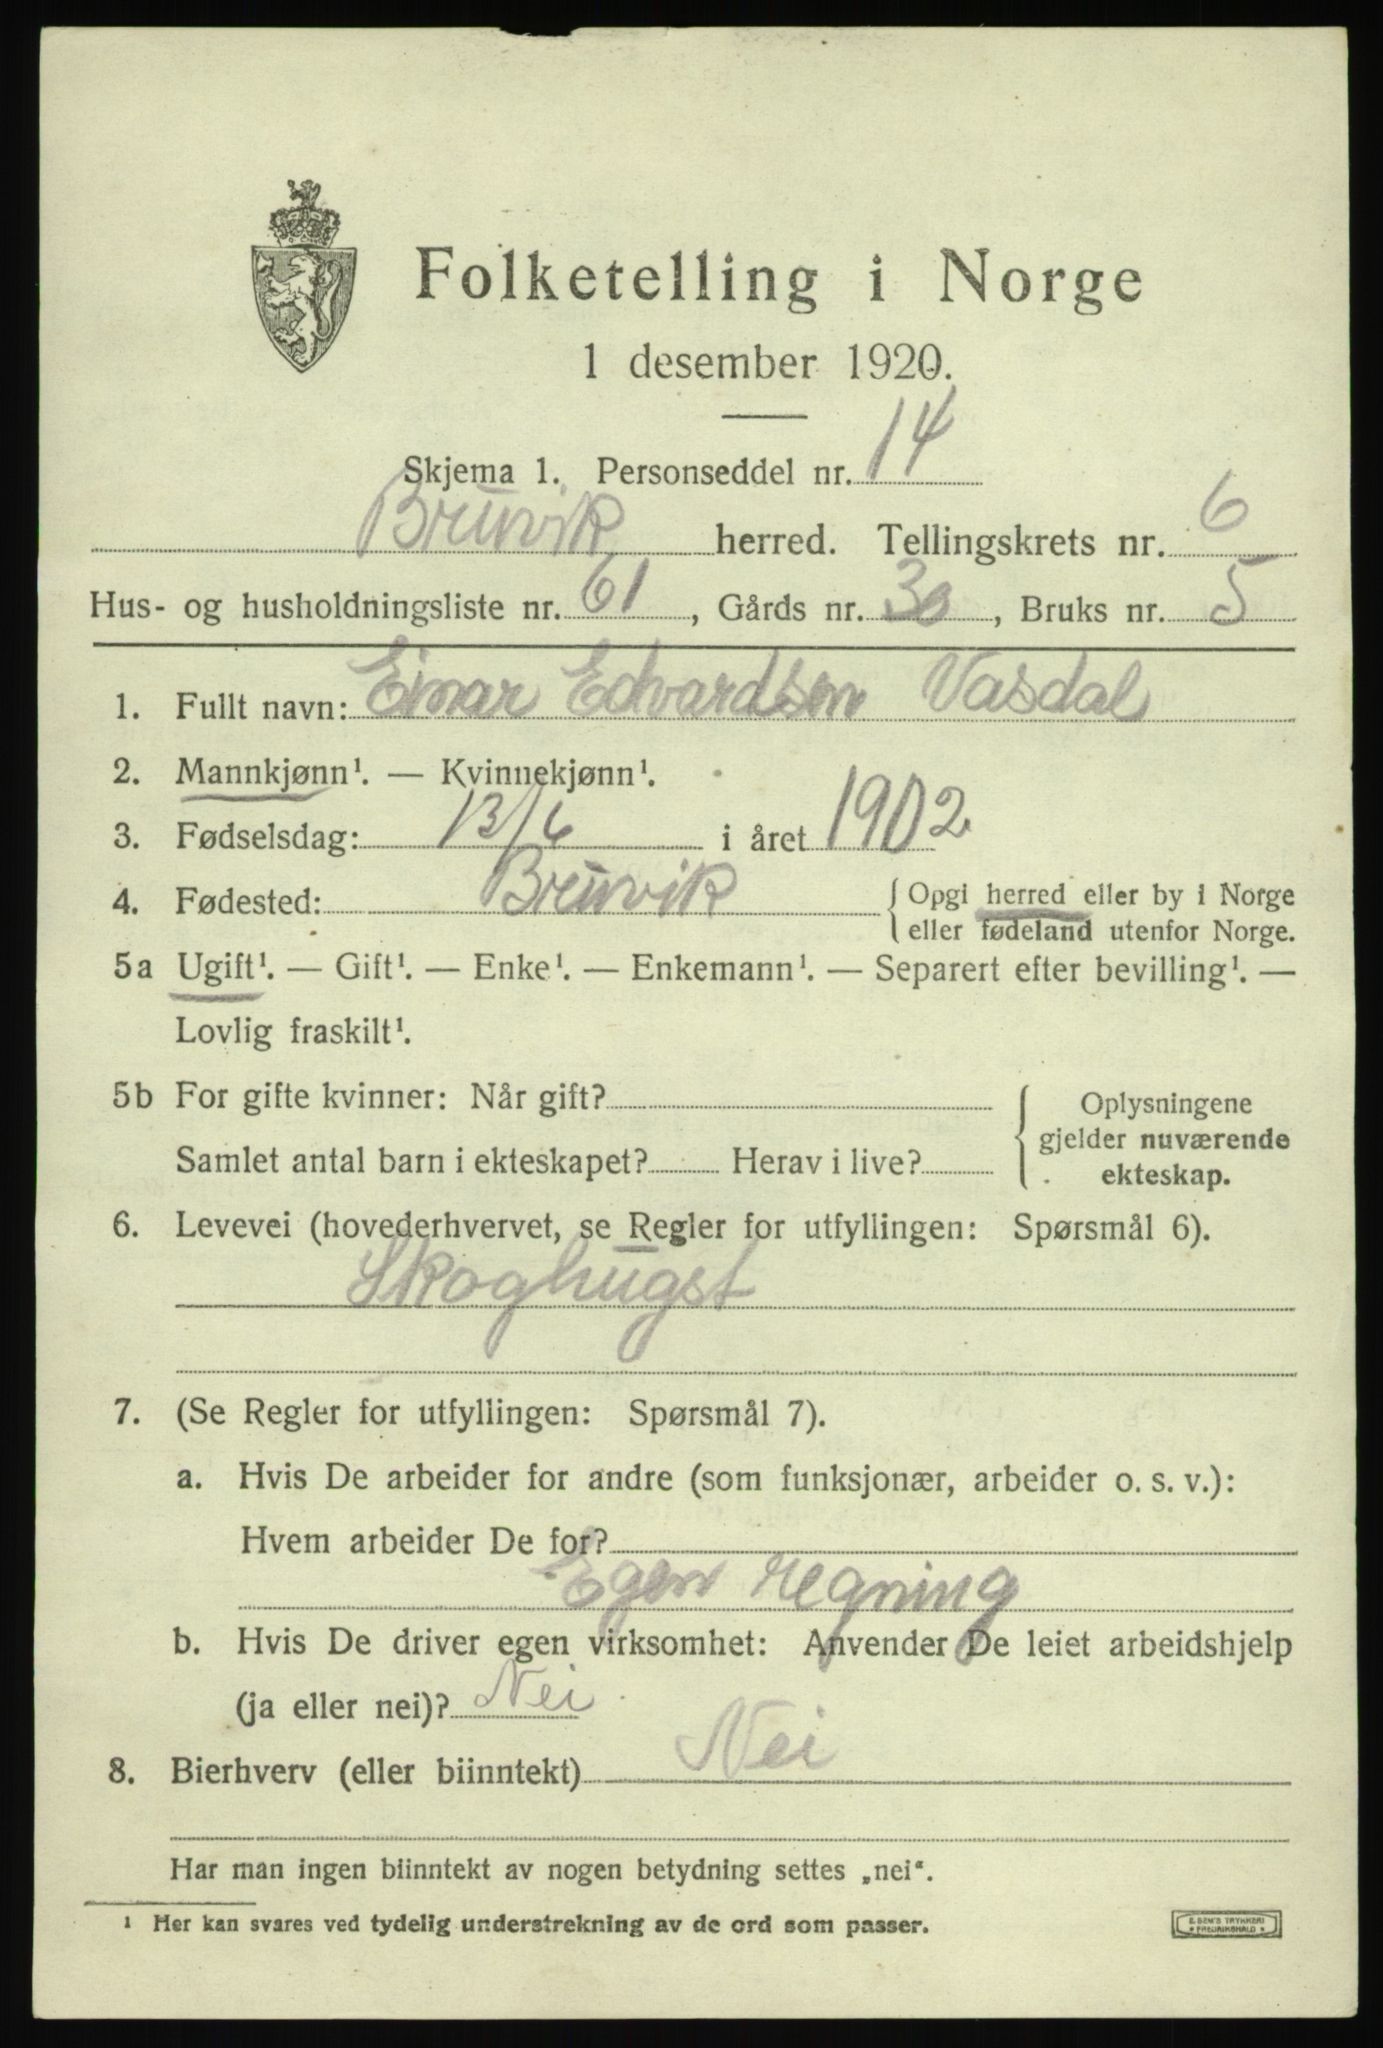 Folketelling i Norge
1 desember 1920.
Skjema 1. Personseddel nr. 14
Bruvik herred. Tellingskrets nr. 6
Hus- og husholdningsliste nr. 61, Gårds nr. 30, Bruks nr. 5
1. Fullt navn: Einar Edvardsen Vasdal
2. Mannkjønn¹. — Kvinnekjønn¹.
3. Fødselsdag: 13/6 i året 1902
4. Fødested: Bruvik { Opgi herred eller by i Norge
eller fødeland utenfor Norge.
5a Ugift¹. — Gift¹. — Enke¹. — Enkemann¹. — Separert efter bevilling¹. —
Lovlig fraskilt¹.
5b For gifte kvinner: Når gift? { Oplysningene
gjelder nuværende
Samlet antal barn i ekteskapet? Herav i live? ekteskap.
6. Levevei (hovederhvervet, se Regler for utfyllingen: Spørsmål 6).
Skoghugst
7. (Se Regler for utfyllingen: Spørsmål 7).
a. Hvis De arbeider for andre (som funksjonær, arbeider o. s. v.):
Hvem arbeider De for?
Egen regning
b. Hvis De driver egen virksomhet: Anvender De leiet arbeidshjelp
(ja eller nei)? Nei
8. Bierhverv (eller biinntekt) Nei
Har man ingen biinntekt av nogen betydning settes „nei“.
¹ Her kan svares ved tydelig understrekning av de ord som passer.
E. SEM'S TRYKKERI
* FREDRIKSHALD *